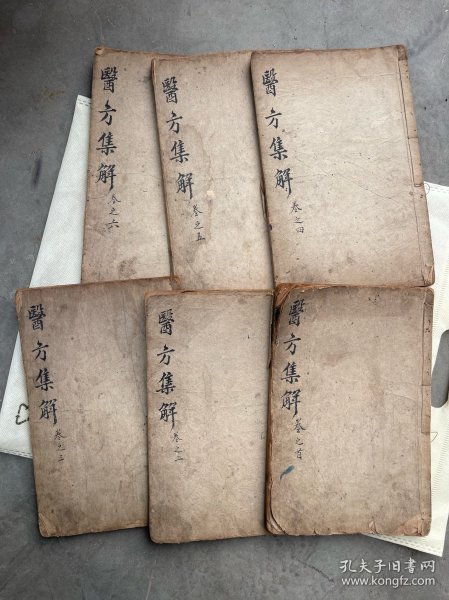 醫方集解
卷之六
醫方集解
卷之五
醫方集解
卷之四
醫方集解
卷之三
醫方集解
卷之二
醫方集解
卷之首
孔夫子旧书网
www.kongfz.com